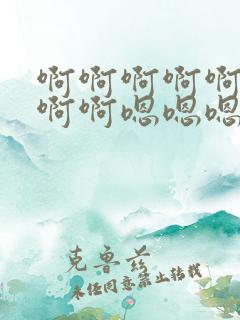 啊啊啊啊啊
啊啊嗯嗯嗯
克鲁兹
未经同意禁止转载